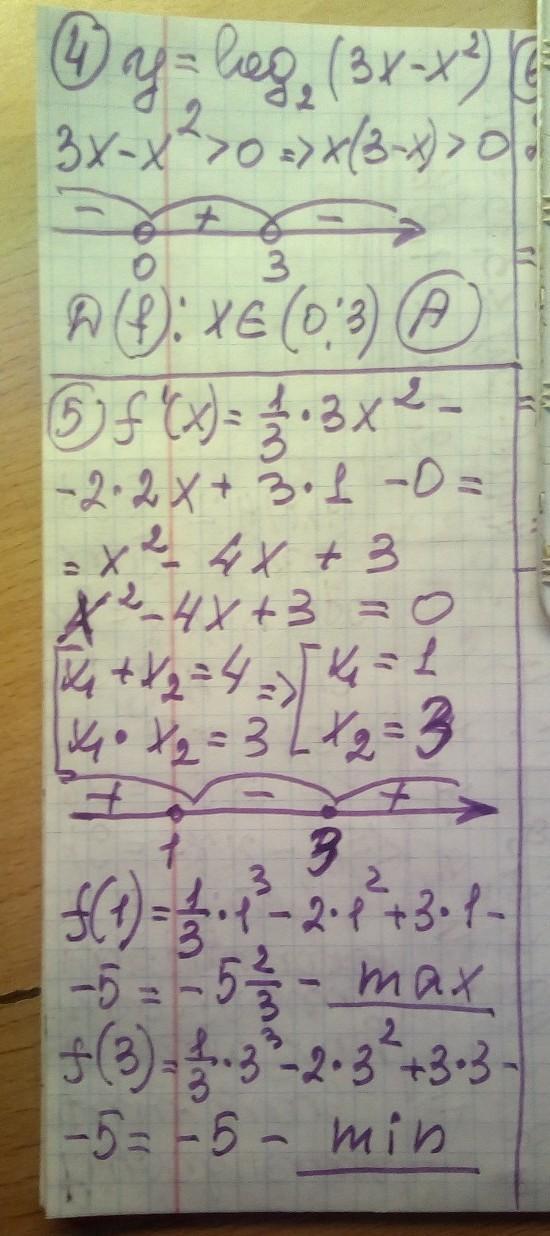 ④ y = log₂ (3x-x²)
3x-x² >0 => x(3-x) > 0
- + -
0 3
D(f): x∈(0;3) Ⓐ
⑤ f'(x) = 1/3 · 3x² -
-2·2x + 3·1 -0 =
= x² - 4x + 3
x² - 4x + 3 = 0
[x₁ + x₂ = 4 => [x₁ = 1
x₁ · x₂ = 3 x₂ = 3
+ - +
1 3
f(1) = 1/3 · 1³ - 2·1² + 3·1 -
-5 = -5 2/3 - max
f(3) = 1/3 · 3³ - 2·3² + 3·3 -
-5 = -5 - min